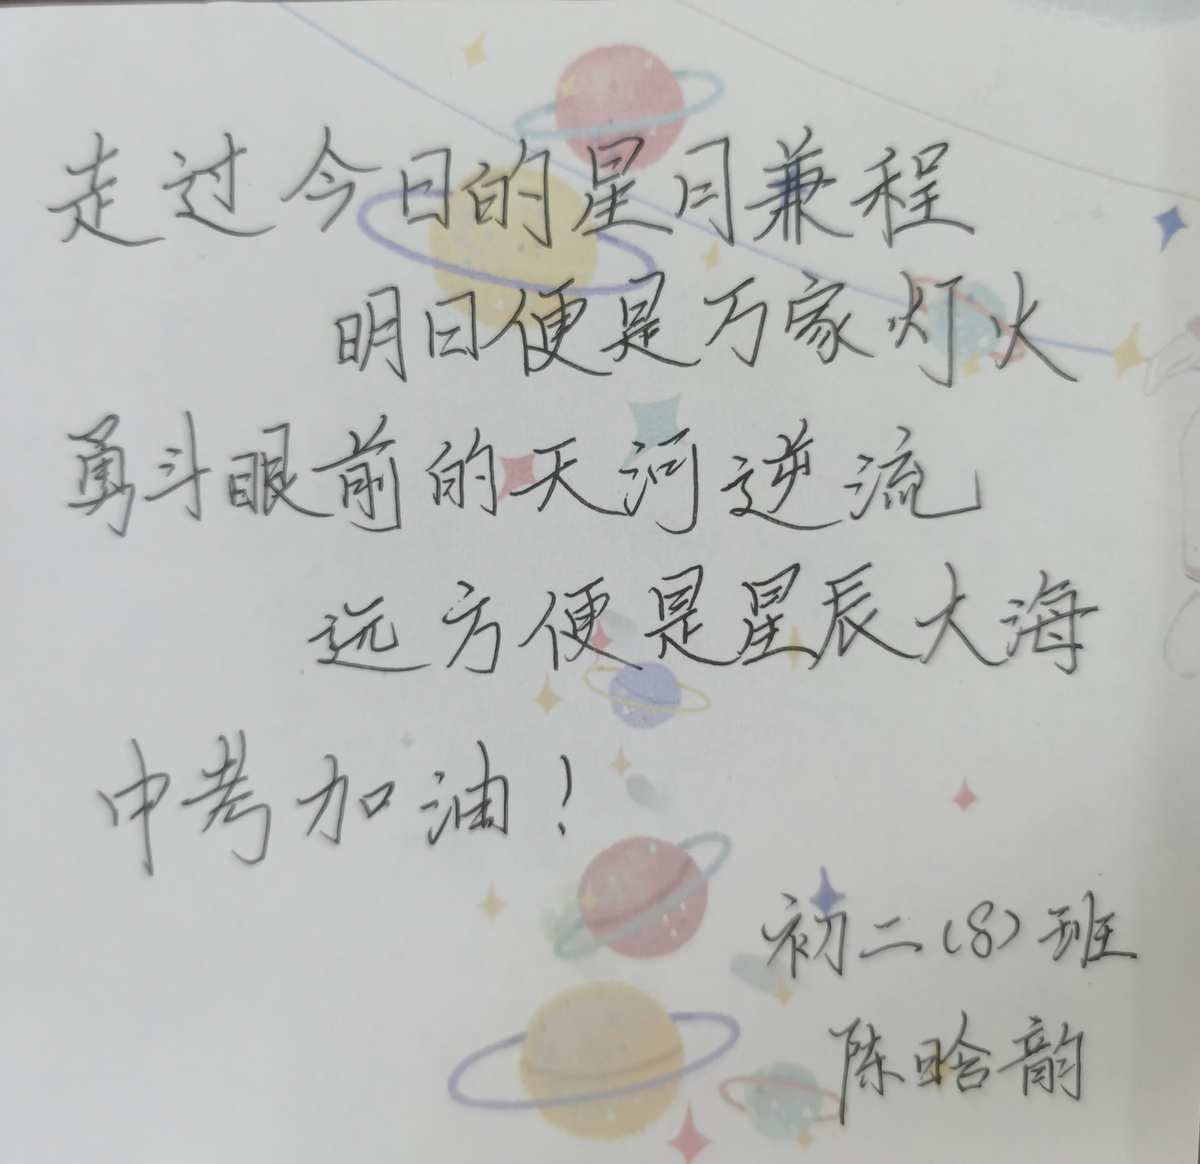 走过今日的星月兼程
明日便是万家灯火
勇斗眼前的天河逆流
远方便是星辰大海
中考加油！
初二(8)班
陈晗韵